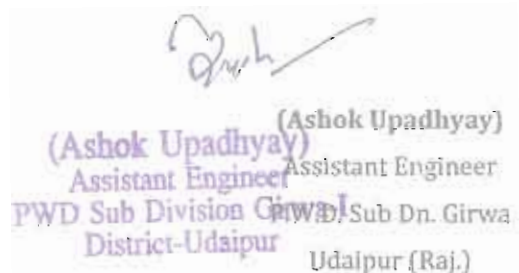 (Ashok Upadhyay)
Assistant Engineer
PWD Sub Division
District-Udaipur
(Ashok Upadhyay)
Assistant Engineer
P.W.D. Sub Dn. Girwa
Udaipur (Raj.)